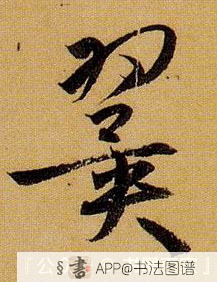 翼
書 APP@书法图谱